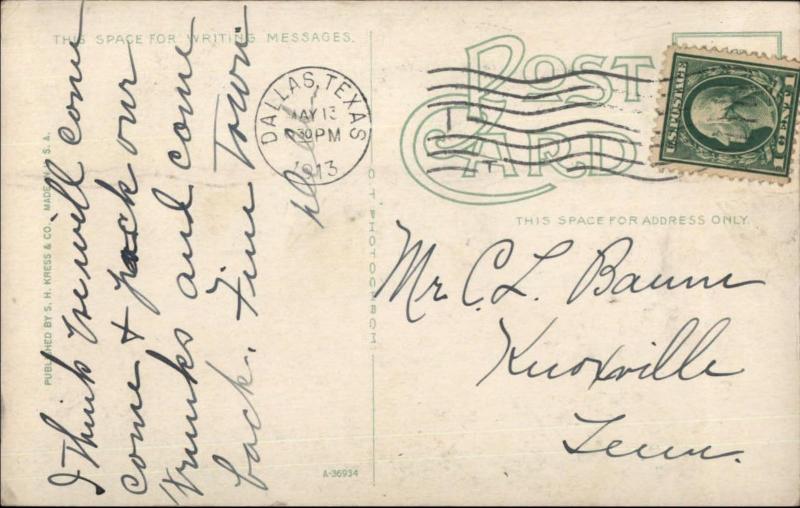 THIS SPACE FOR WRITING MESSAGES.
I Think we will come
come & pack our
trunks and come
back. Fine Town.
PUBLISHED BY S. H. KRESS & CO. MADE IN U. S. A.
A-36934
POST CARD
DALLAS, TEXAS
MAY 13
30 PM
1913
U.S. POSTAGE
1 CENT 1
THIS SPACE FOR ADDRESS ONLY.
Mr. C. L. Baum
Knoxville
Tenn.